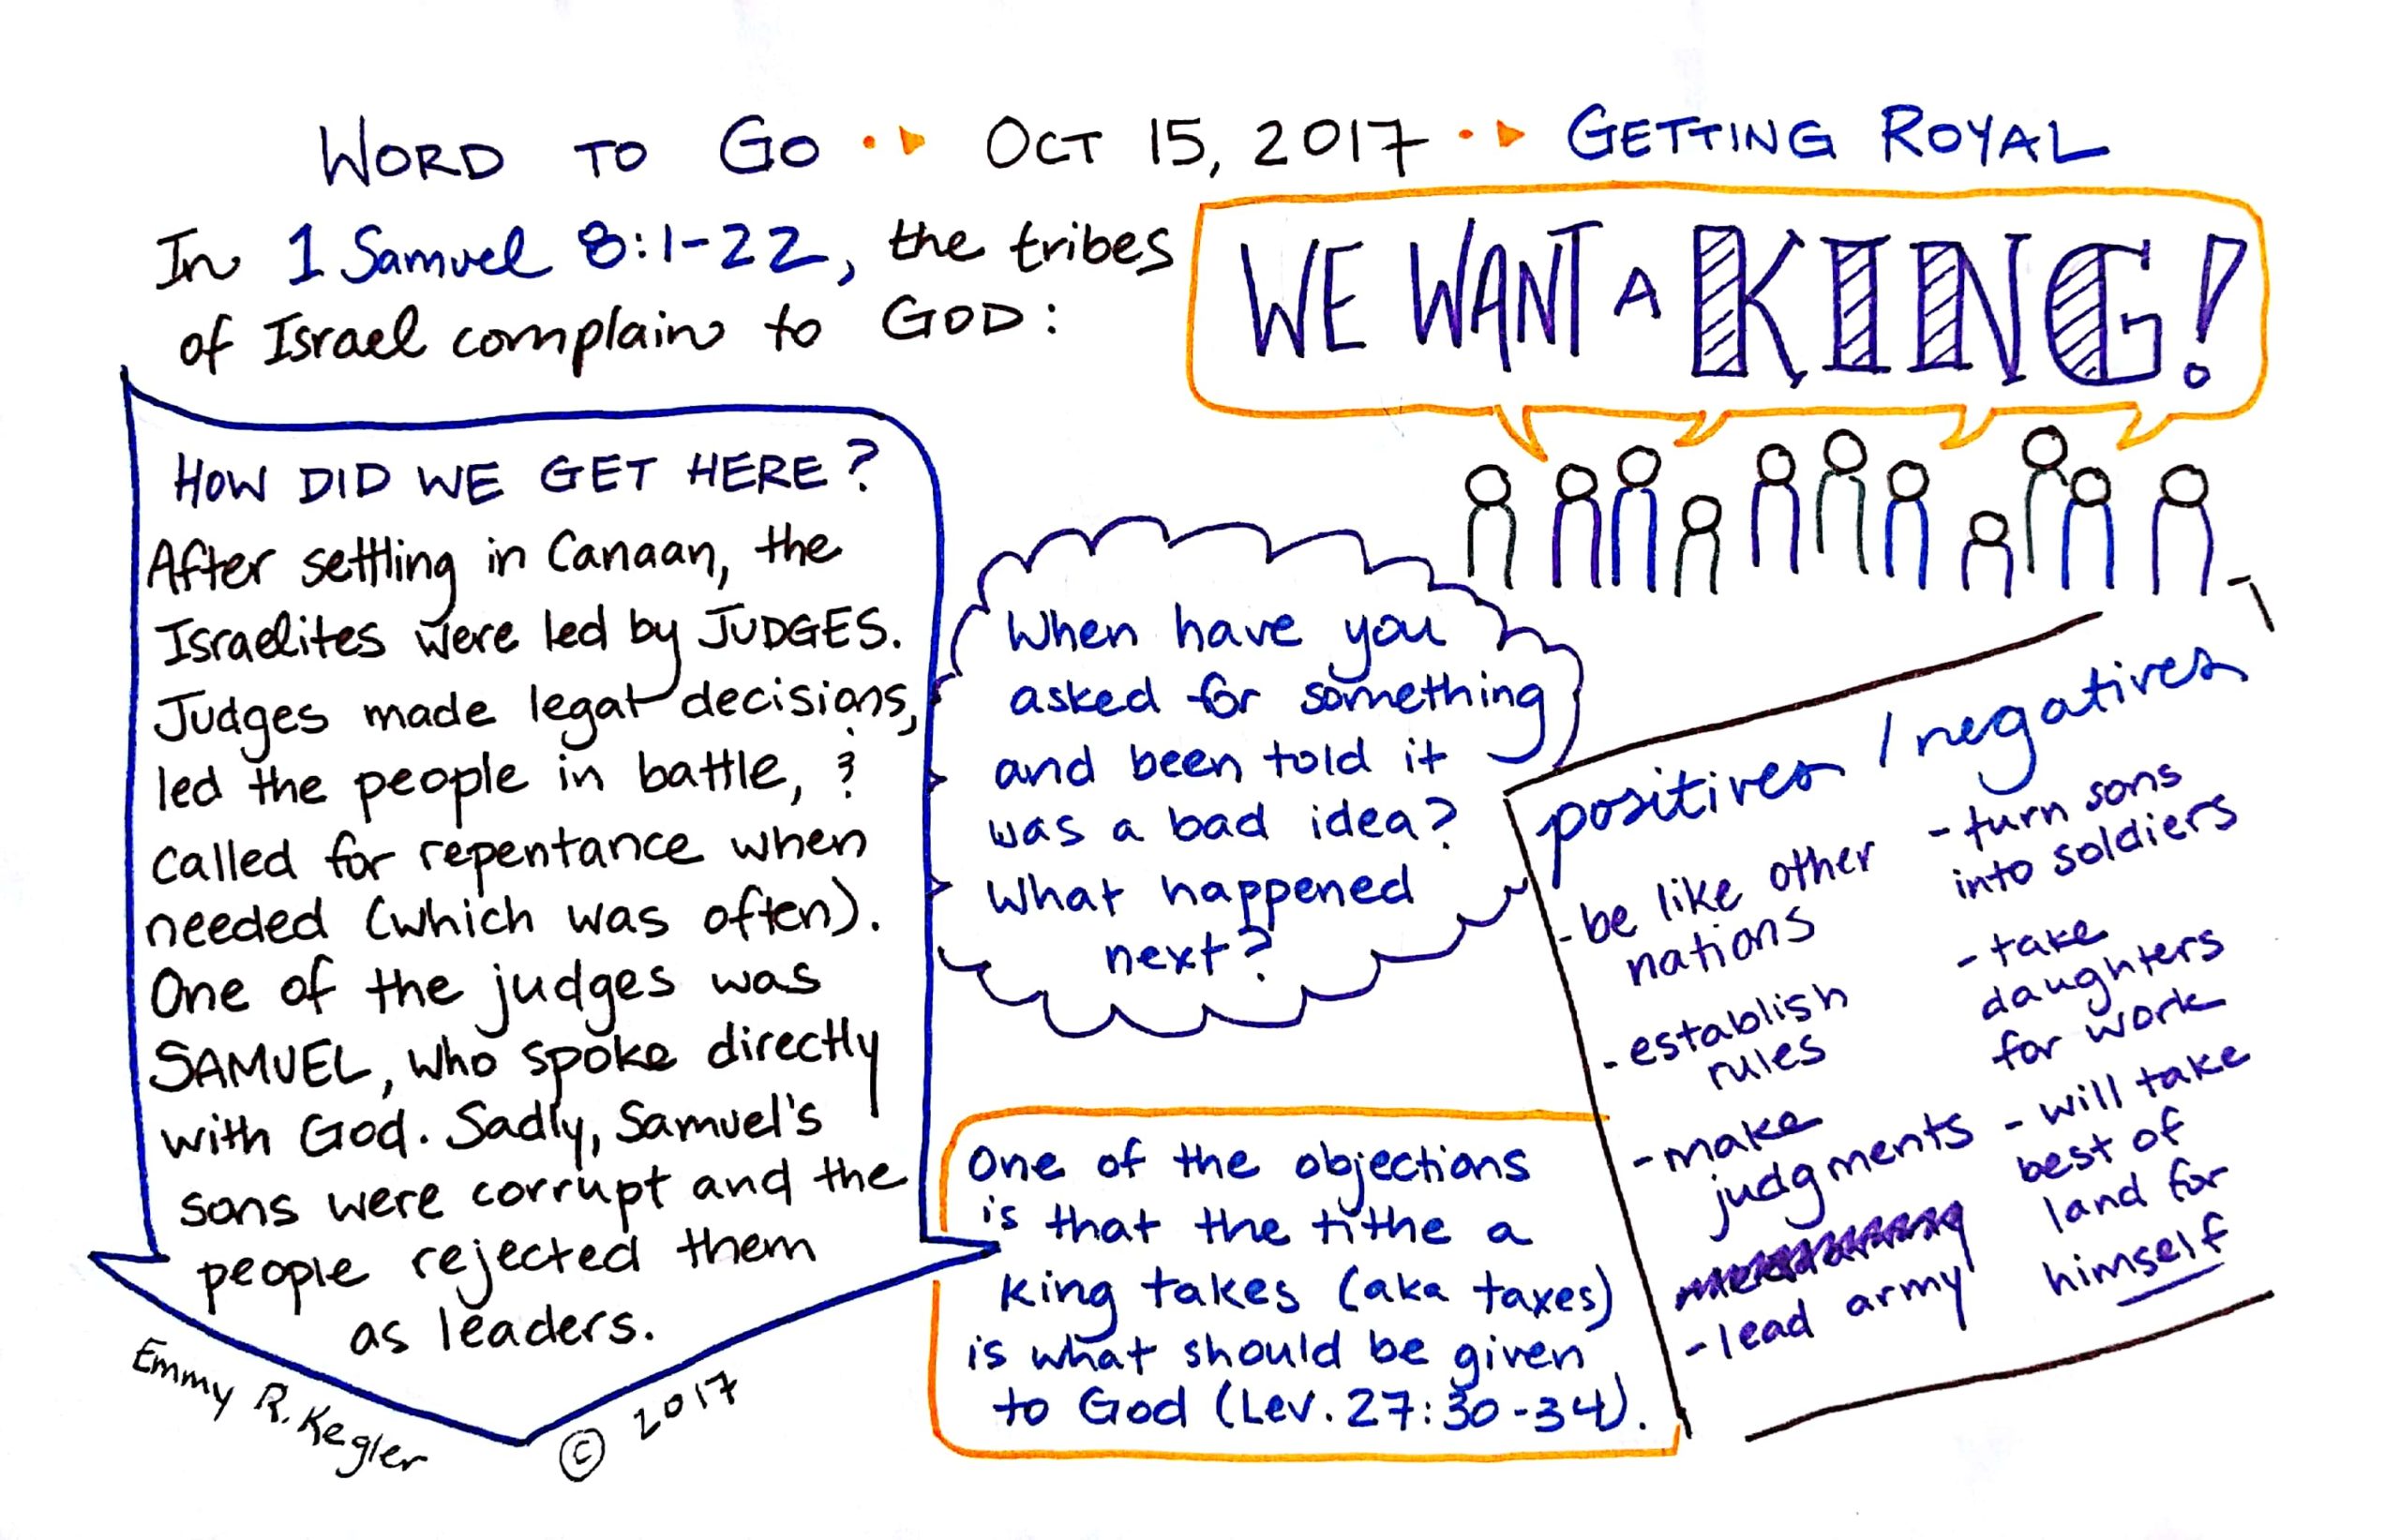 WORD TO GO OCT 15, 2017 GETTING ROYAL
In 1 Samuel 8:1-22, the tribes
of Israel complain to GOD:
WE WANT A KING!
HOW DID WE GET HERE?
After settling in Canaan, the
Israelites were led by JUDGES.
Judges made legal decisions,
led the people in battle, &
called for repentance when
needed (which was often).
One of the judges was
SAMUEL, who spoke directly
with God. Sadly, Samuel's
sons were corrupt and the
people rejected them
as leaders.
When have you
asked for something
and been told it
was a bad idea?
What happened
next?
One of the objections
is that the tithe a
king takes (aka taxes)
is what should be given
to God (Lev. 27:30-34).
positives / negatives
-be like other
nations
-establish
rules
-make
judgments
-lead army
-turn sons
into soldiers
-take
daughters
for work
-will take
best of
land for
himself
Emmy R. Kegler
© 2017